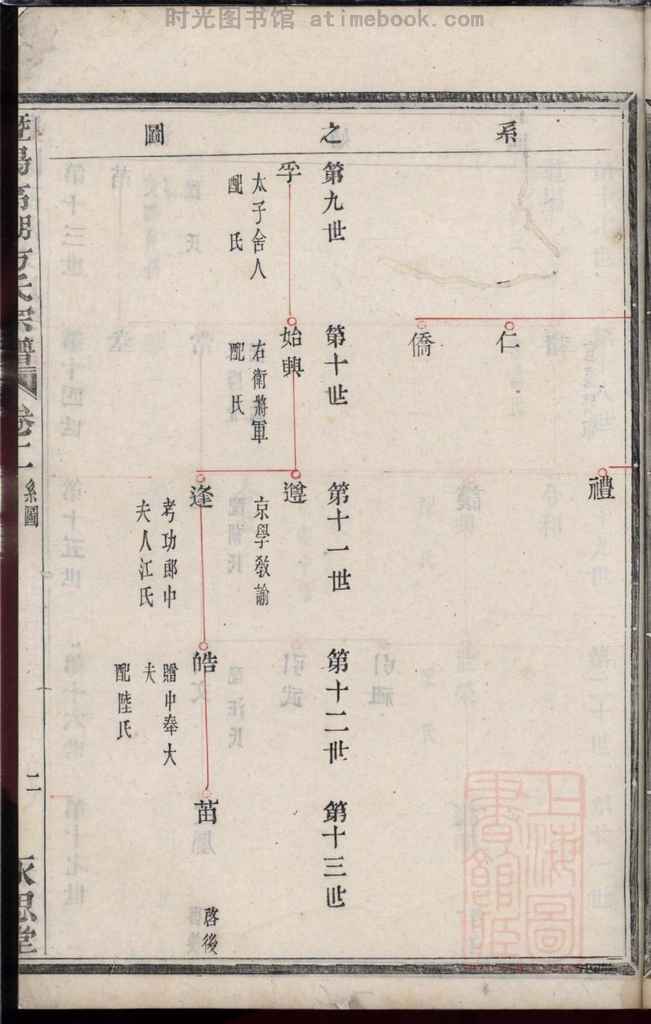 时光图书馆 atimebook.com
系之圖
仁
僑
禮
第九世
第十世
第十一世
第十二世
第十三世
孚
太子舍人
配 氏
始興
右衛將軍
配 氏
遵
京學教諭
逢
考功郎中
夫人江氏
皓
贈中奉大
夫
配陸氏
苗
啓後
宗譜
卷二
系圖
二
永思堂
上海圖書館藏